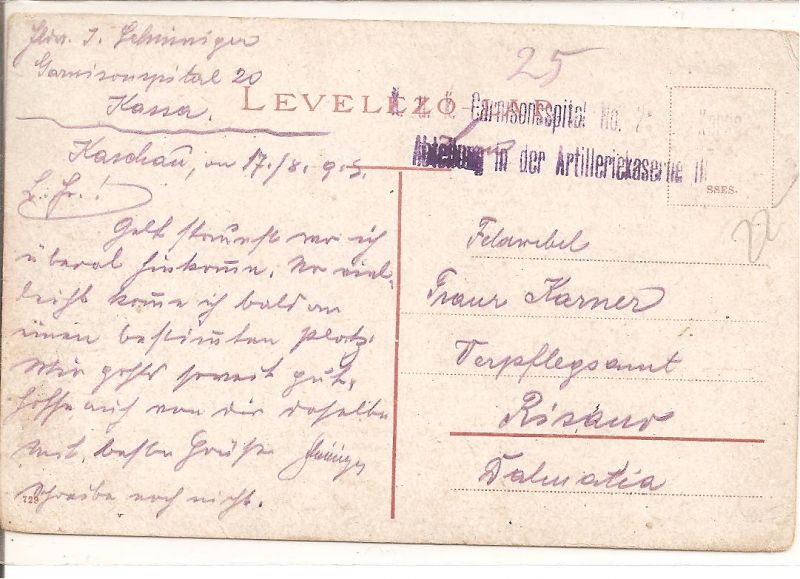 Garnisonspital 20
Kassa.
LEVELEZŐ LAP
K. u. k. Garnisonsspital No. 20
Abteilung in der Artilleriekaserne III
25
Kaschau, am 17./8. 915.
L. Fr.!
Gelt staunst wo ich
überal hinkome. No viel-
leicht kome ich bald an
einen bestimten Platz.
Mir gehts soweit gut,
hoffe auch von dir dasselbe
mit beste Grüße
Schreibe noch nicht.
729
SSES.
22
Feldwebel
Franz Karner
Verpflegsamt
Risano
Dalmatia